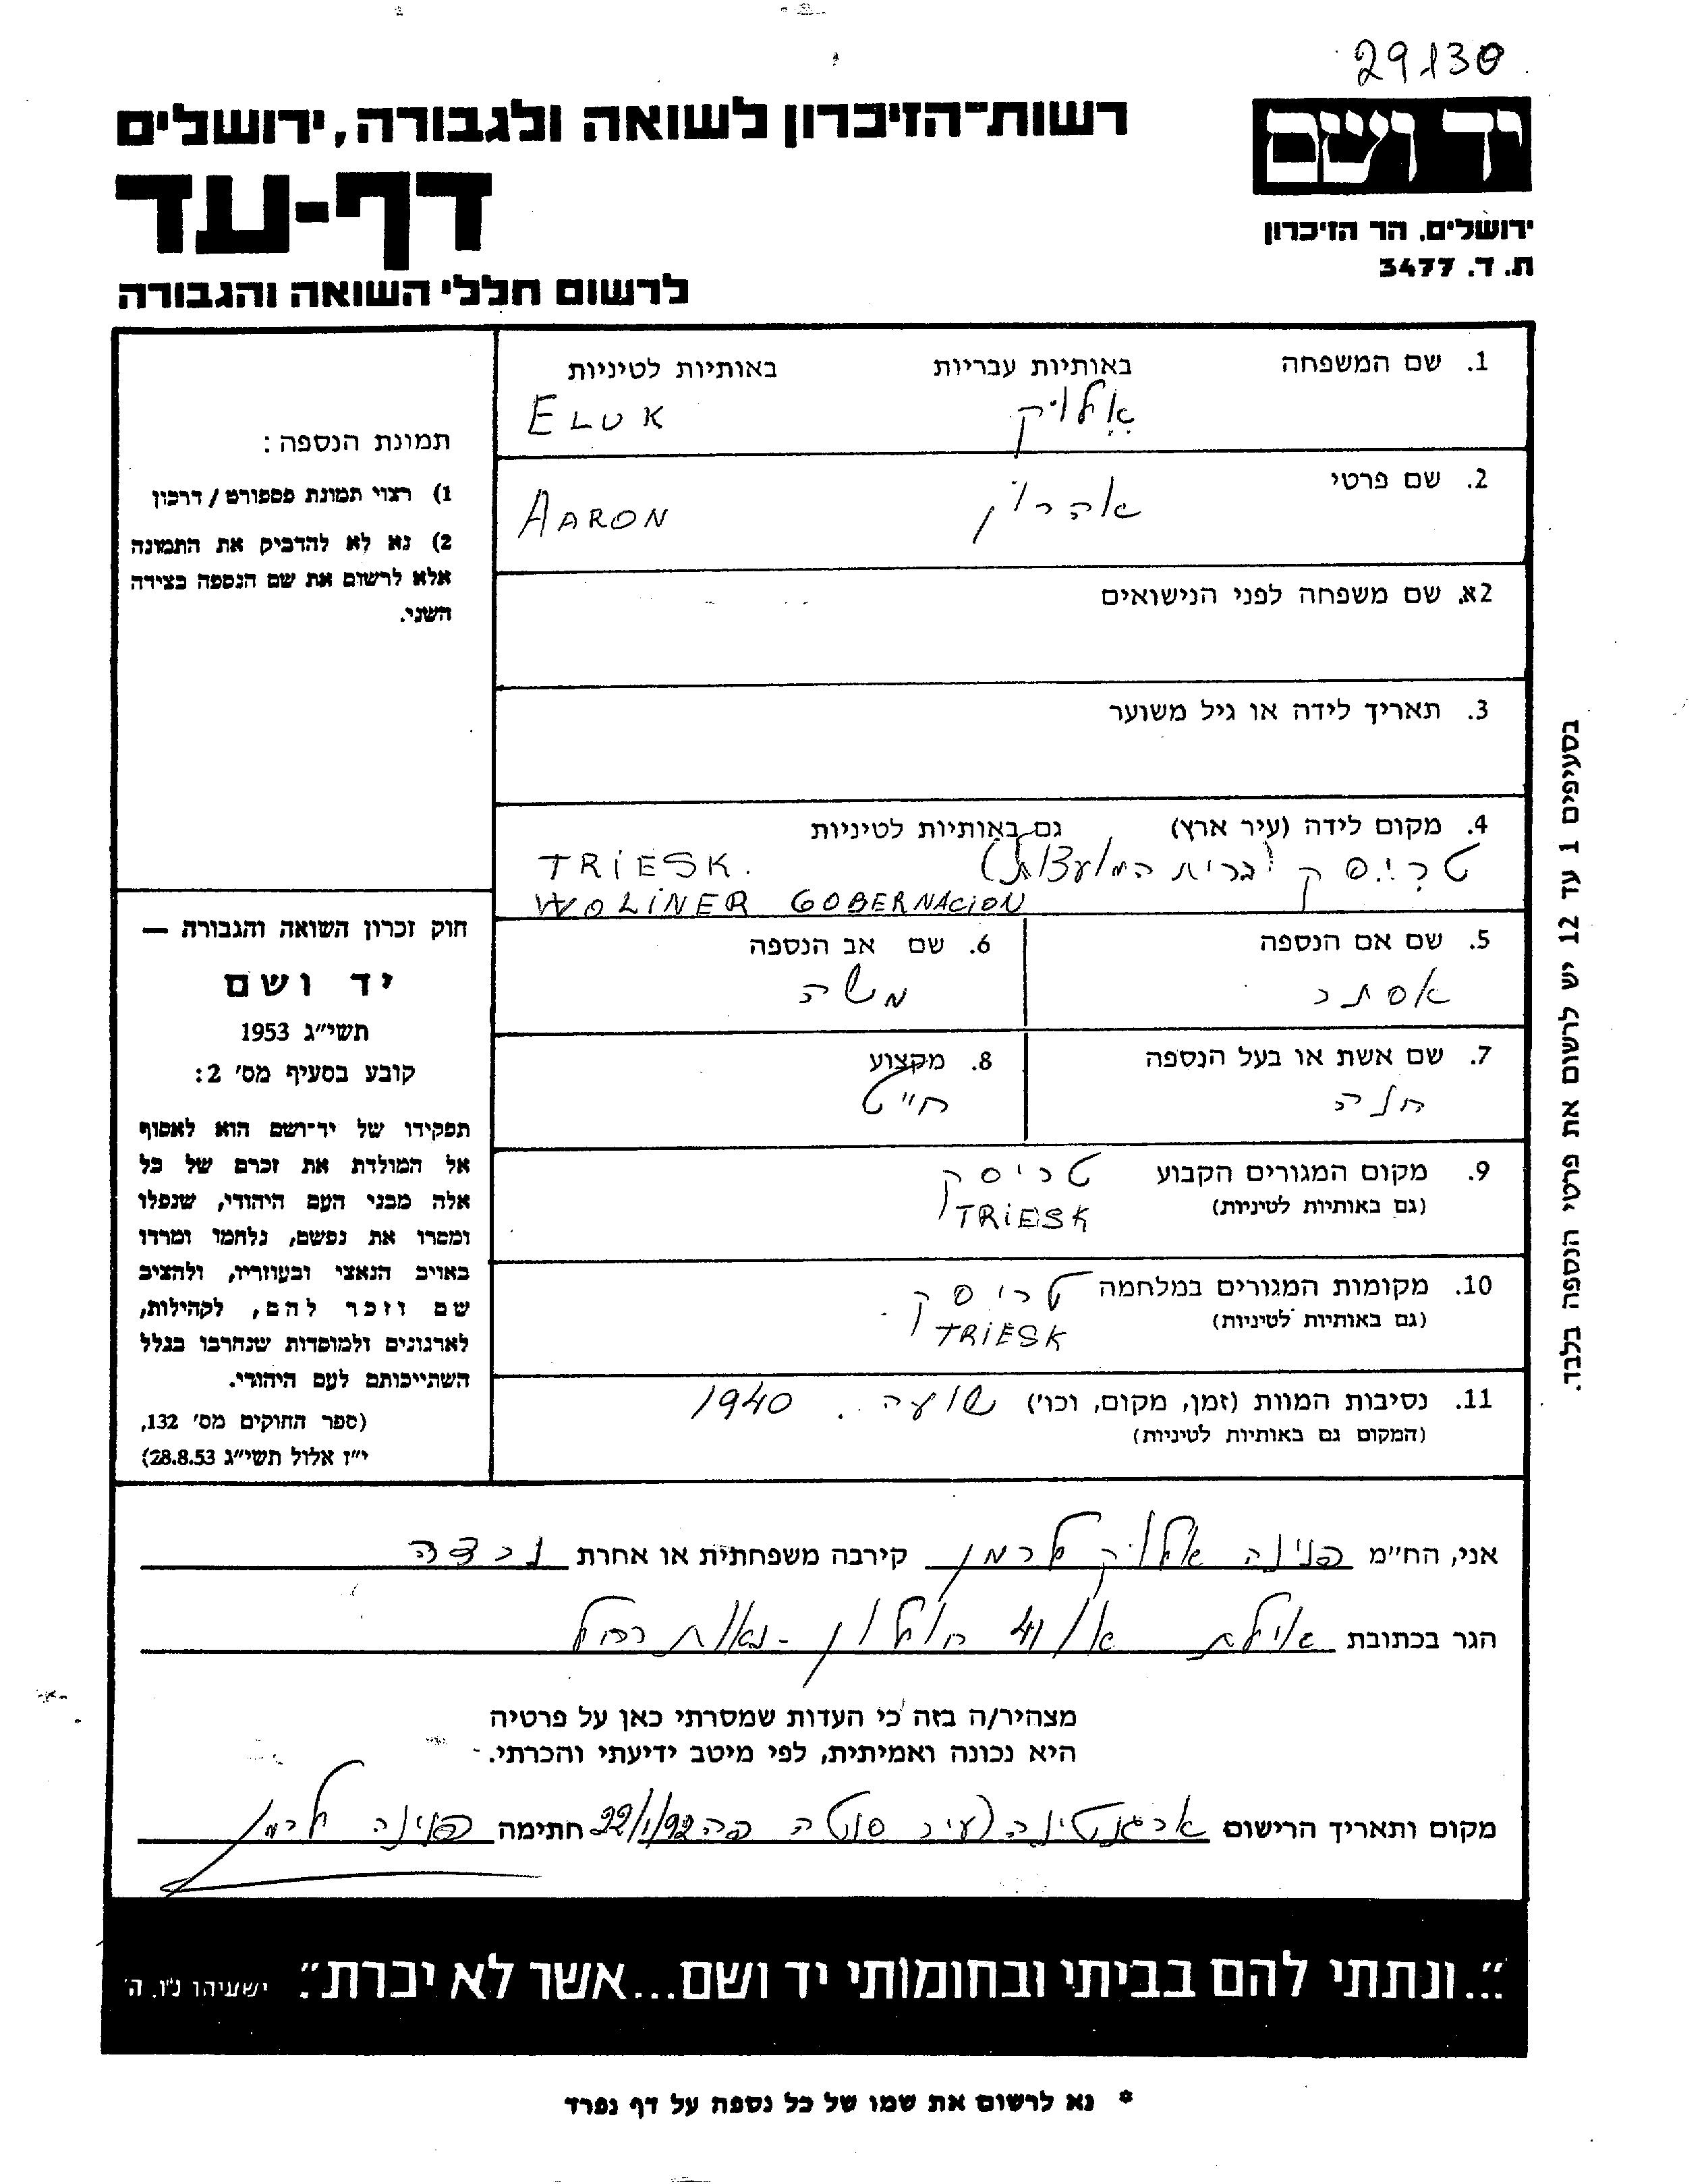 29130
יד ושם
ירושלים, הר הזיכרון
ת. ד. 3477
רשות-הזיכרון לשואה ולגבורה, ירושלים
דף-עד
לרשום חללי השואה והגבורה
1. שם המשפחה באותיות עבריות באותיות לטיניות
אלוק ELUK
2. שם פרטי
אהרון AARON
2א. שם משפחה לפני הנישואים
3. תאריך לידה או גיל משוער
4. מקום לידה (עיר ארץ) גם באותיות לטיניות
טריסק (ברית המועצות) TRIESK.
WOLINER GOBERNACION
5. שם אם הנספה 6. שם אב הנספה
אסתר משה
7. שם אשת או בעל הנספה 8. מקצוע
חנה חייט
9. מקום המגורים הקבוע טריסק
(גם באותיות לטיניות) TRIESK
10. מקומות המגורים במלחמה טריסק
(גם באותיות לטיניות) TRIESK
11. נסיבות המוות (זמן, מקום, וכו') שועה. 1940
(המקום גם באותיות לטיניות)
תמונת הנספה:
1) רצוי תמונת פספורט / דרכון
2) נא לא להדביק את התמונה
אלא לרשום את שם הנספה בצידה
השני.
חוק זכרון השואה והגבורה —
יד ושם
תשי"ג 1953
קובע בסעיף מס' 2:
תפקידו של יד-ושם הוא לאסוף
אל המולדת את זכרם של כל
אלה מבני העם היהודי, שנפלו
ומסרו את נפשם, נלחמו ומרדו
באויב הנאצי ובעוזריו, ולהציב
שם וזכר להם, לקהילות,
לארגונים ולמוסדות שנחרבו בגלל
השתייכותם לעם היהודי.
(ספר החוקים מס' 132,
י"ז אלול תשי"ג 28.8.53)
בסעיפים 1 עד 12 יש לרשום את פרטי הנספה בלבד.
אני, הח"מ פנינה אלוק לרמן קירבה משפחתית או אחרת נכדה
הגר בכתובת אילת 41/א חולון - נאות רחל
מצהיר/ה בזה כי העדות שמסרתי כאן על פרטיה
היא נכונה ואמיתית, לפי מיטב ידיעתי והכרתי.
מקום ותאריך הרישום ארגנטינה (עיר סנטה פה 22/1/92 חתימה פנינה לרמן
"...ונתתי להם בביתי ובחומותי יד ושם...אשר לא יכרת". ישעיהו נ"ו, ה'
* נא לרשום את שמו של כל נספה על דף נפרד